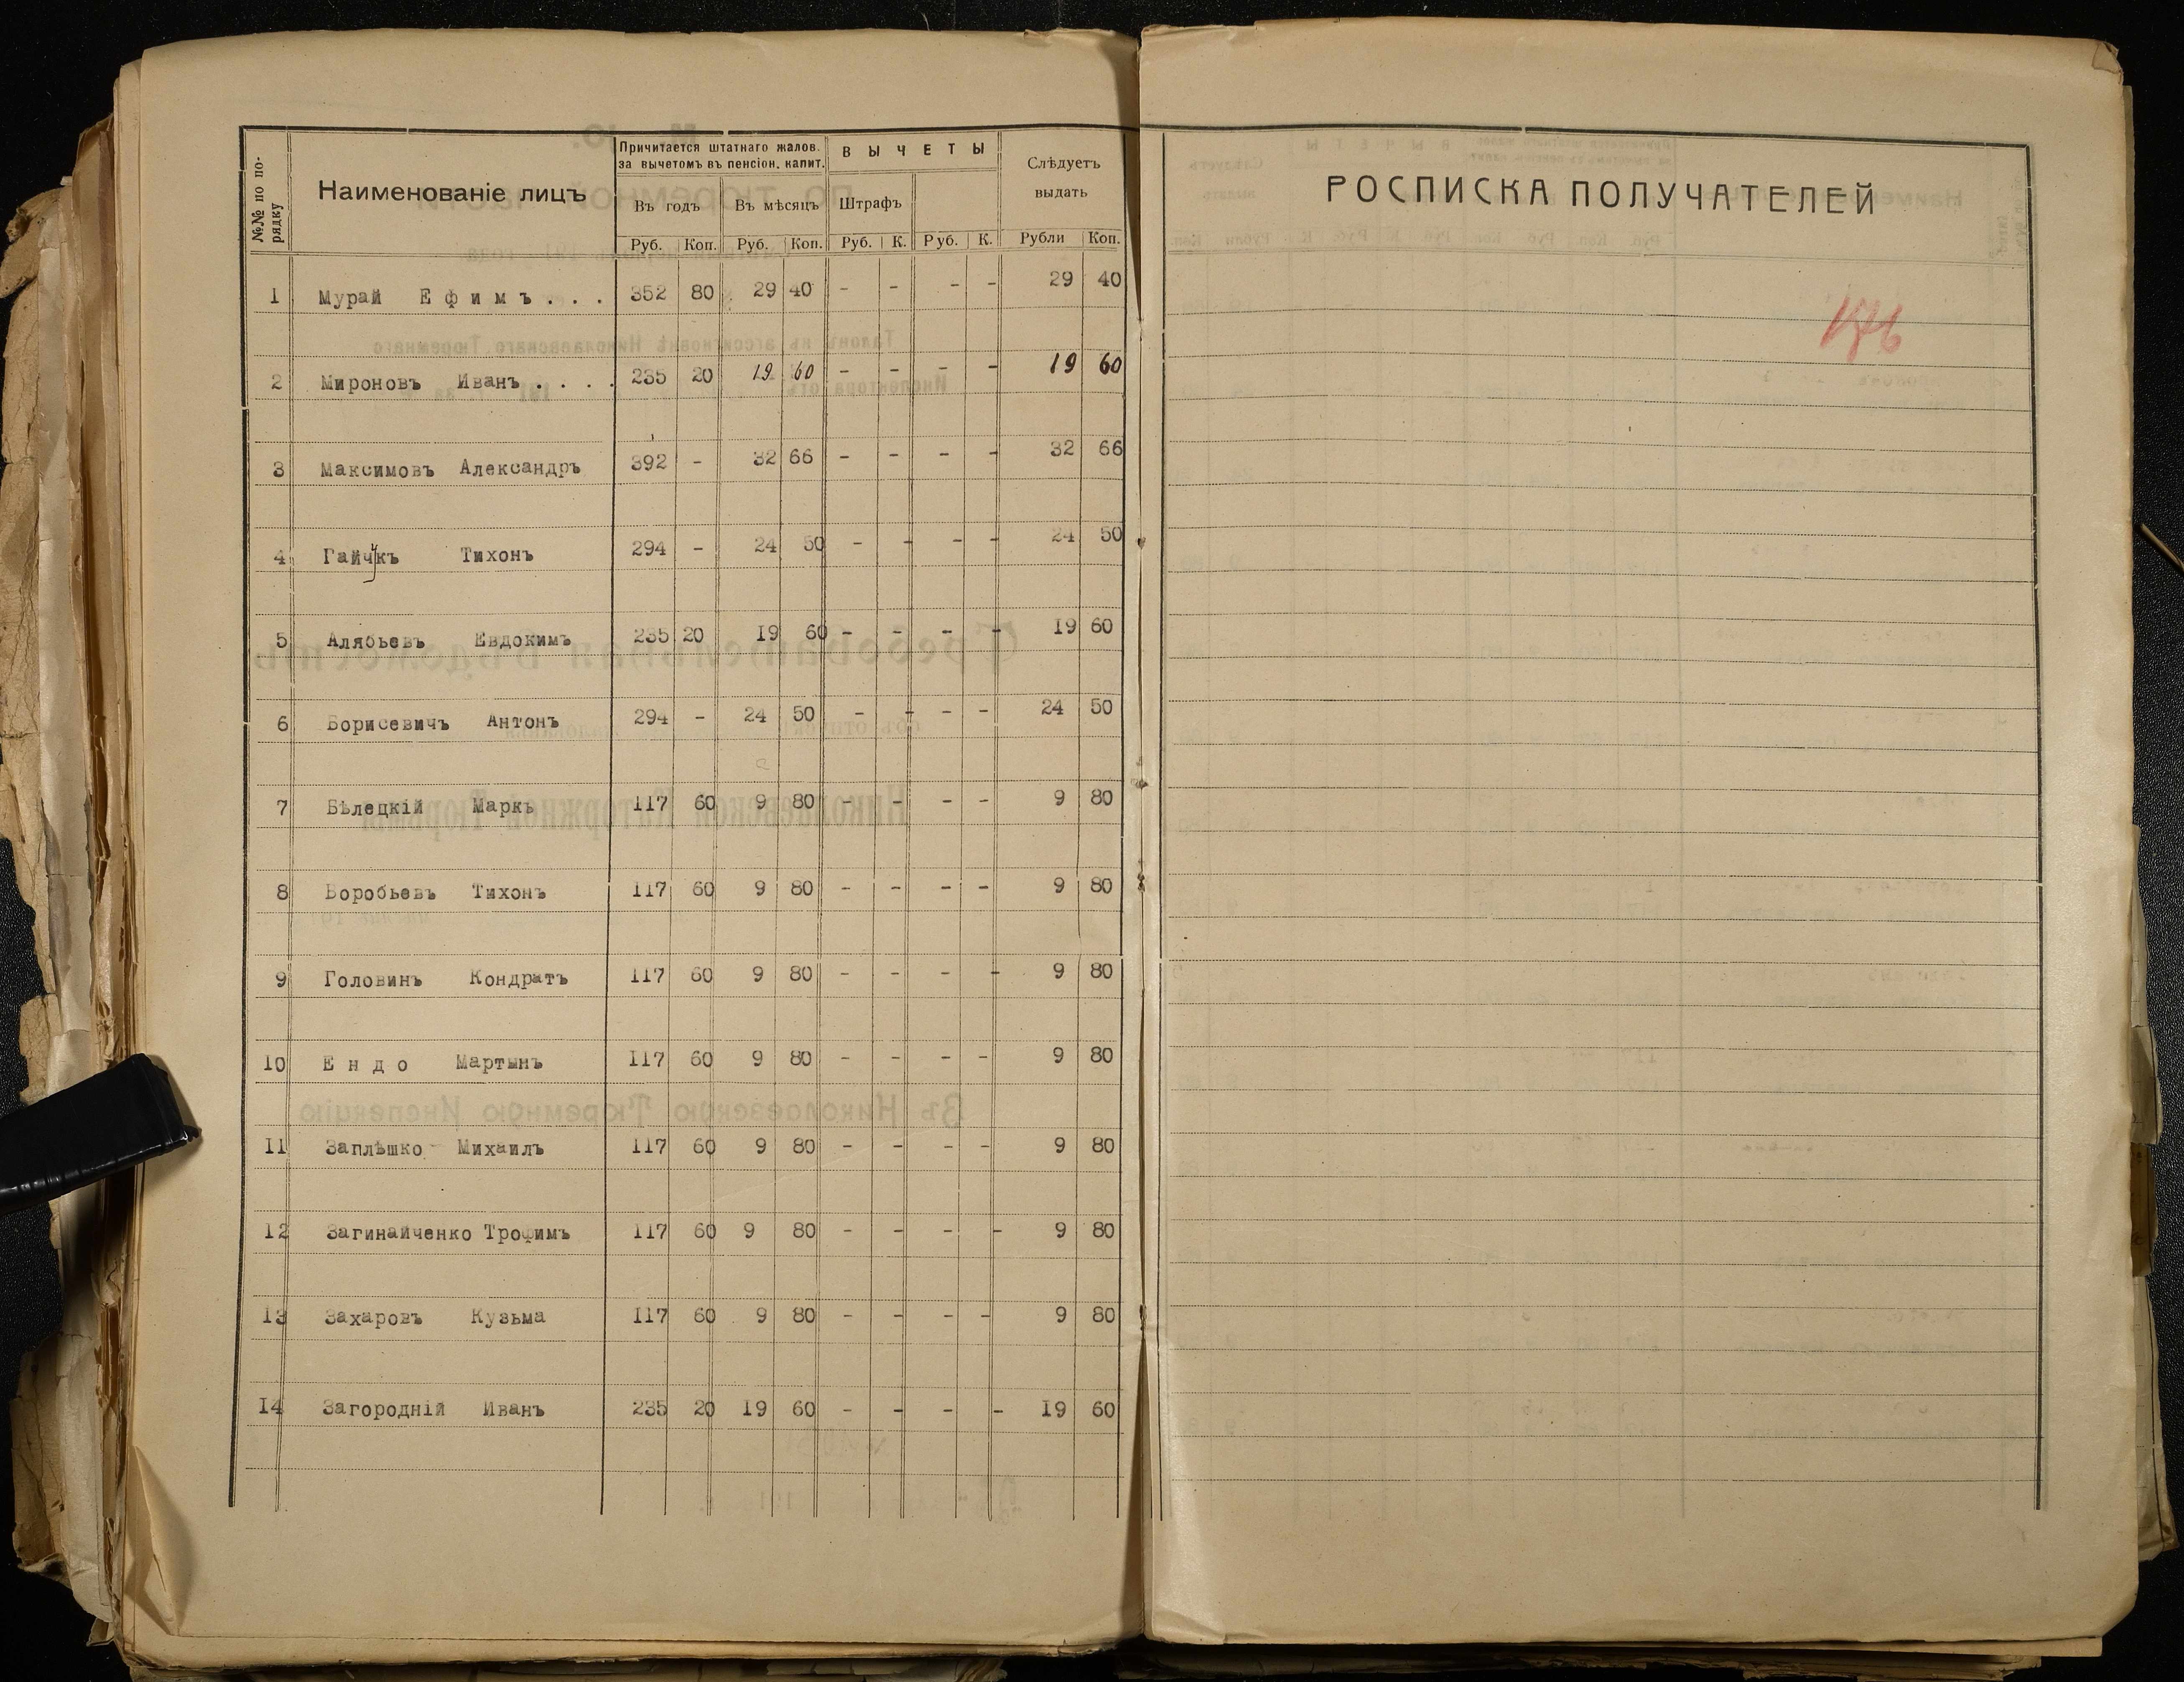 №№ по по-
рядку
Наименованіе лицъ
Причитается штатнаго жалов.
за вычетомъ въ пенсіон. капит.
Въ годъ
Въ мѣсяцъ
ВЫЧЕТЫ
Штрафъ
Слѣдуетъ
выдать
Руб. Коп. Руб. Коп. Руб. К. Руб. К. Рубли Коп.
РОСПИСКА ПОЛУЧАТЕЛЕЙ
1 Мурай Ефимъ . . . 352 80 29 40 - - - - 29 40
2 Мироновъ Иванъ . . . . 235 20 19 60 - - - - 19 60
3 Максимовъ Александръ 392 - 32 66 - - - - 32 66
4 Гайчукъ Тихонъ 294 - 24 50 - - - - 24 50
5 Алябьевъ Евдокимъ 235 20 19 60 - - - - 19 60
6 Борисевичъ Антонъ 294 - 24 50 - - - - 24 50
7 Бѣлецкій Маркъ 117 60 9 80 - - - - 9 80
8 Воробьевъ Тихонъ 117 60 9 80 - - - - 9 80
9 Головинъ Кондратъ 117 60 9 80 - - - - 9 80
10 Ендо Мартынъ 117 60 9 80 - - - - 9 80
11 Заплѣшко Михаилъ 117 60 9 80 - - - - 9 80
12 Загинайченко Трофимъ 117 60 9 80 - - - - 9 80
13 Захаровъ Кузьма 117 60 9 80 - - - - 9 80
14 Загородній Иванъ 235 20 19 60 - - - - 19 60